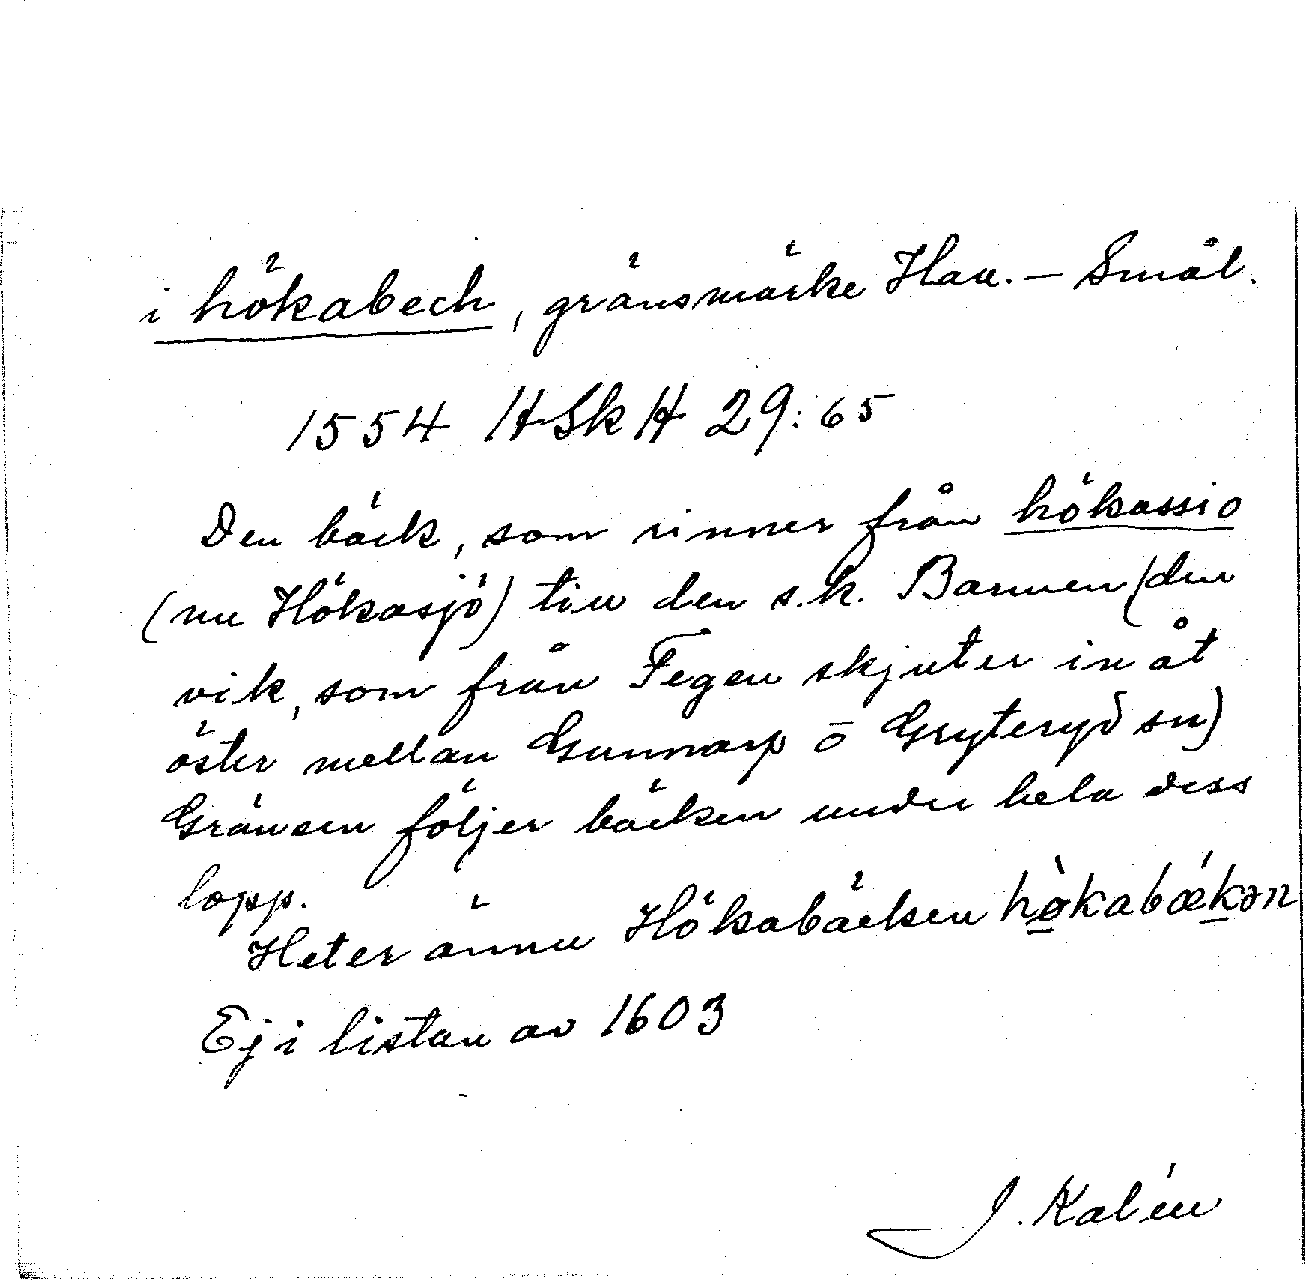 i hökabech, gränsmärke Hall. – Smål.
1554 HSkH 29:65
Den bäck, som rinner från hökassio
(nu Hökasjö) till den s.k. Barnen (den
vik, som från Fegen skjuter in åt
öster mellan Gunnarp o Gryteryd sn)
Gränsen följer bäcken under hela dess
lopp.
Heter ännu Hökabäcken hø̀kabækən
Ej i listan av 1603
J. Kalén